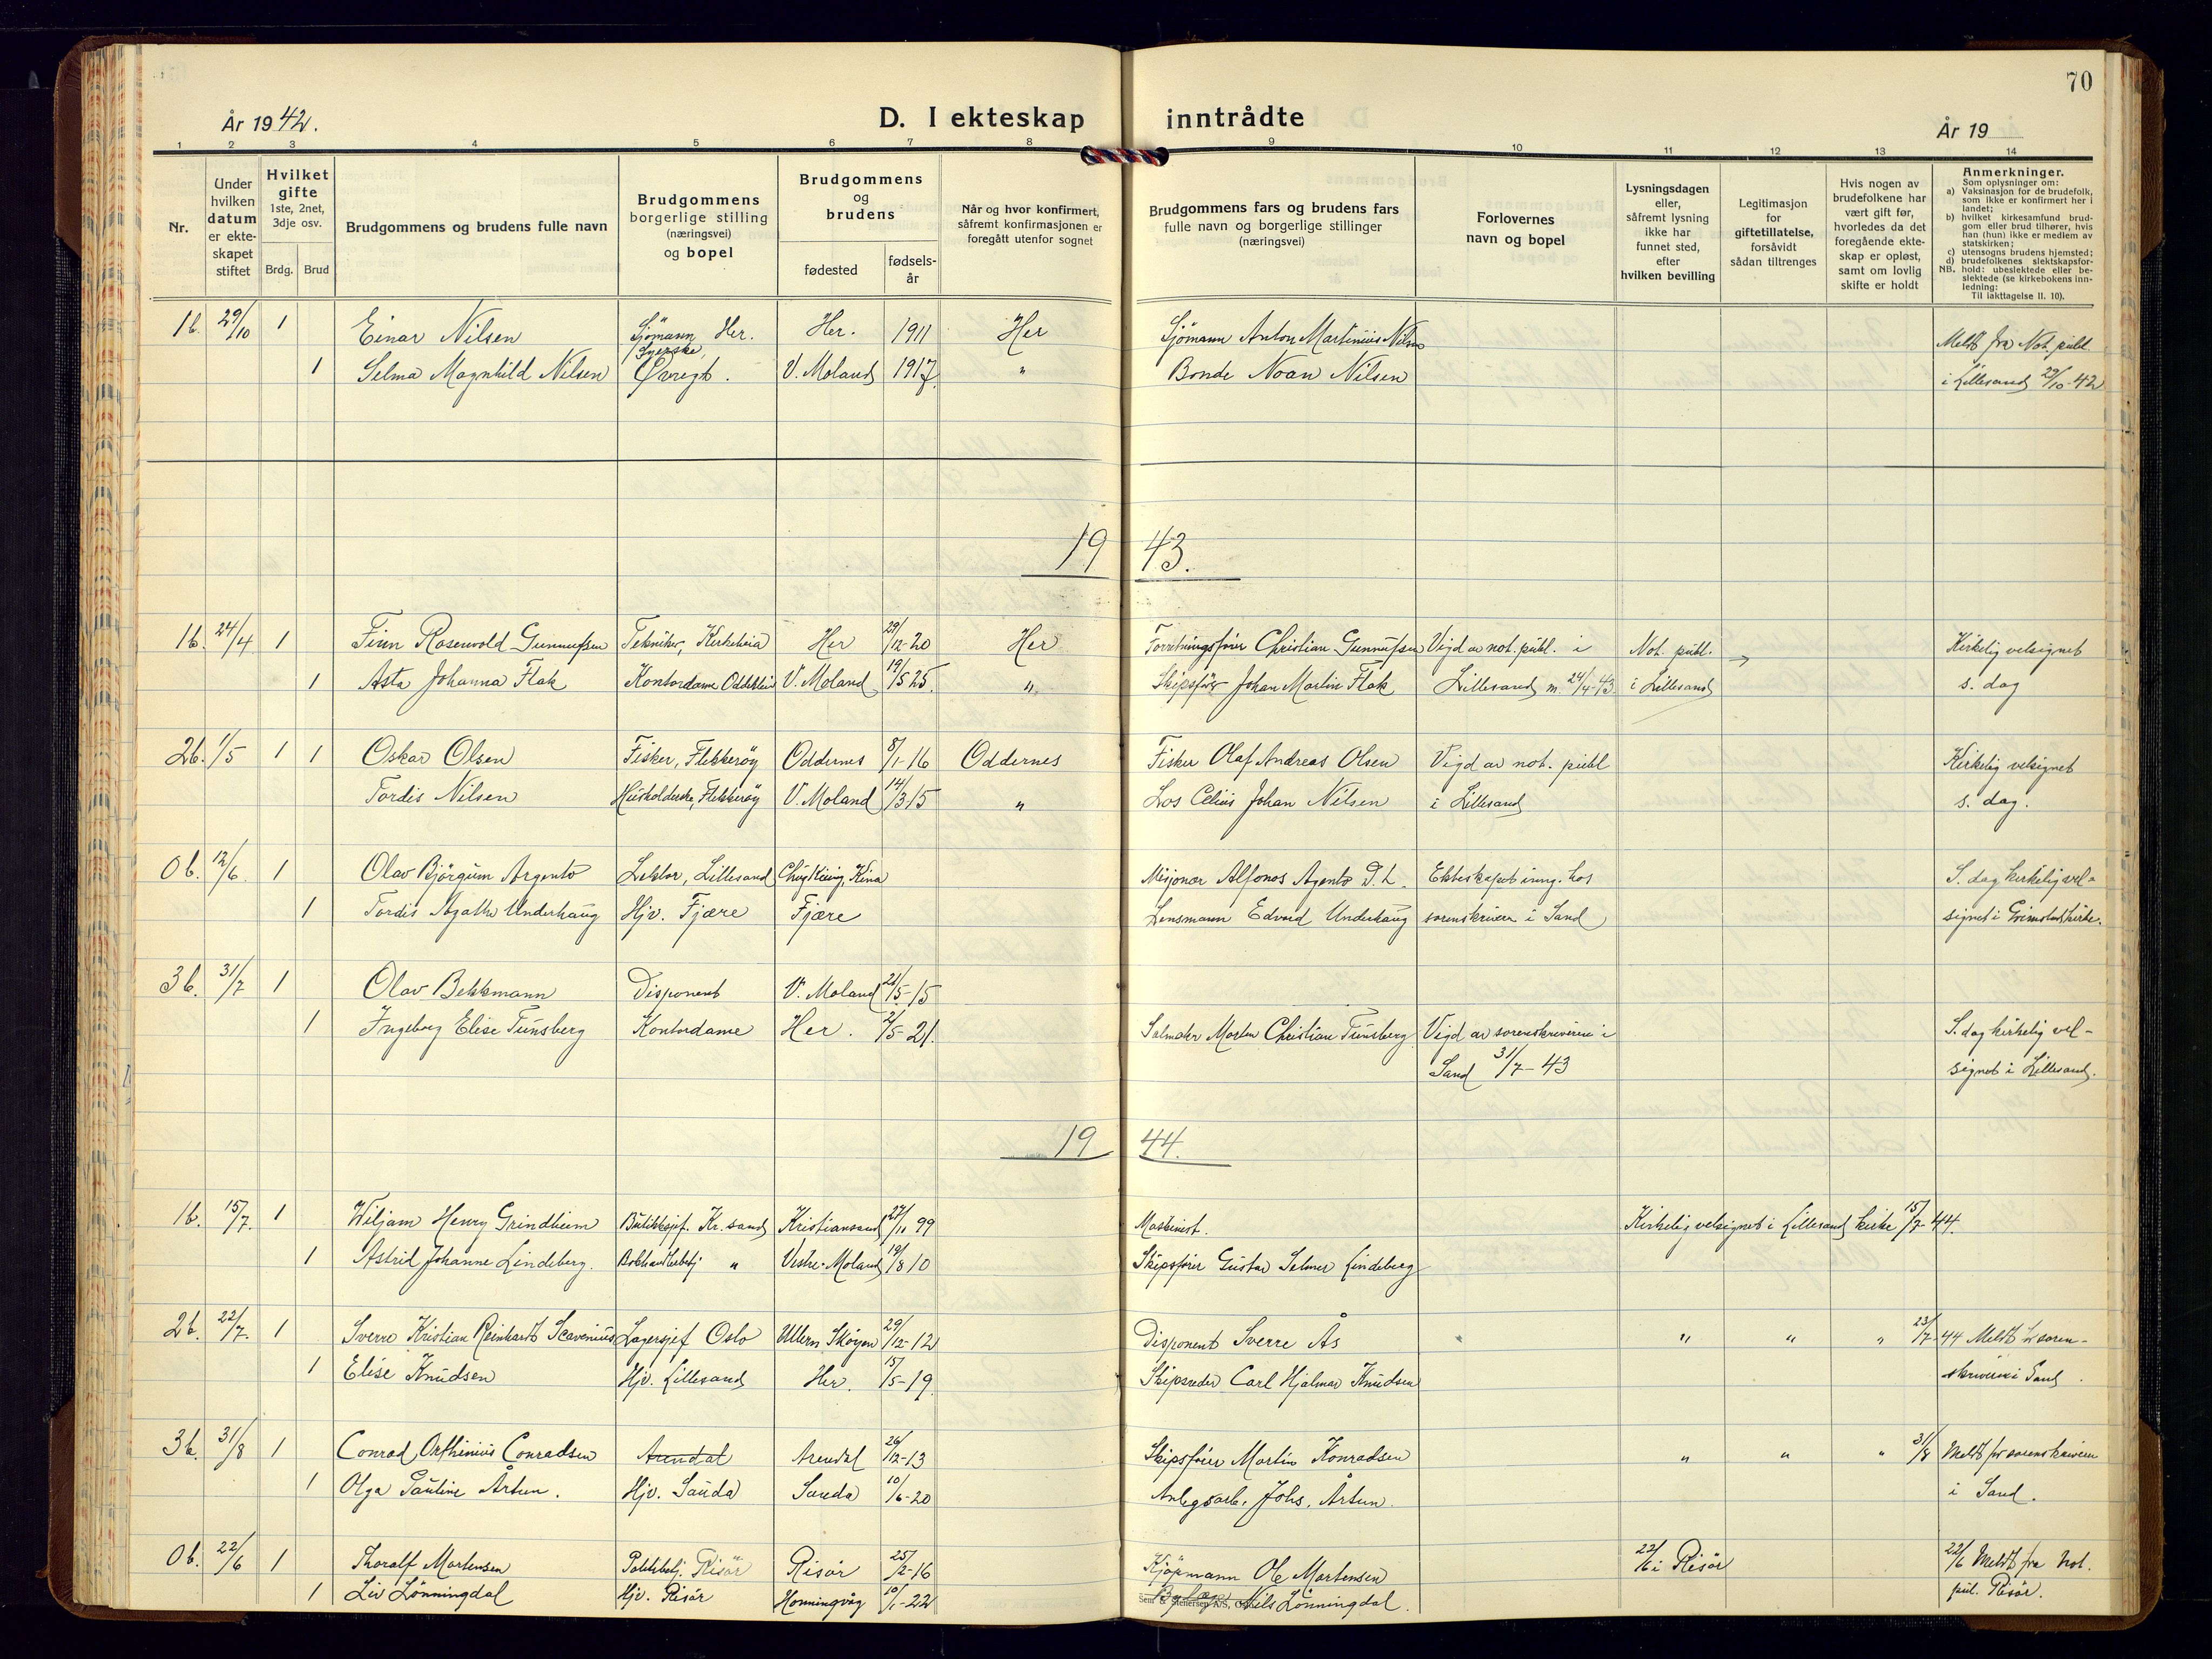 70
År 1942.
D. I ekteskap inntrådte
År 19
1 2 3 4 5 6 7 8 9 10 11 12 13 14
Nr.
Under hvilken datum er ekteskapet stiftet
Hvilket gifte 1ste, 2net, 3dje osv.
Brdg. Brud
Brudgommens og brudens fulle navn
Brudgommens borgerlige stilling (næringsvei) og bopel
Brudgommens og brudens
fødested
fødselsår
Når og hvor konfirmert, såfremt konfirmasjonen er foregått utenfor sognet
Brudgommens fars og brudens fars fulle navn og borgerlige stillinger (næringsvei)
Forlovernes navn og bopel
Lysningsdagen eller, såfremt lysning ikke har funnet sted, efter hvilken bevilling
Legitimasjon for giftetillatelse, forsåvidt sådan tiltrenges
Hvis nogen av brudefolkene har vært gift før, hvorledes da det foregående ekteskap er opløst, samt om lovlig skifte er holdt
Anmerkninger.
Som oplysninger om:
a) Vaksinasjon for de brudefolk, som ikke er konfirmert her i landet;
b) hvilket kirkesamfund brudgom eller brud tilhører, hvis han (hun) ikke er medlem av statskirken;
c) utensogns brudens hjemsted;
d) brudefolkenes slektskapsforhold: ubeslektede eller beslektede (se kirkebokens innledning:
NB.
Til iakttagelse II. 10).
1b. 29/10 1 Einar Nilsen Sjömann Her. Her. 1911 Her Sjömann Anton Martinius Nilsen Meldt fra Not. publ.
1 Selma Magnhild Nilsen Syerske, Øvregt. V. Moland 1917 " Bonde Noan Nilsen i Lillesand 29/10-42
1943.
1b. 24/4 1 Finn Rosenvold Gunnufsen Tekniker, Kirkeheia Her 29/12-20 Her Forretningsfører Christian Gunnufsen Vigd av not. publ. i Not. publ. Kirkelig velsignet
1 Asta Johanna Flak Kontordame V. Moland 19/5 25. " Skipsfører Johan Martin Flak Lillesand m 24/4-43 i Lillesand s. dag
2b. 1/5 1 1 Oskar Olsen Fisker, Flekkeröy Oddernes 8/1-16 Oddernes Fisker Olaf Andreas Olsen Vigd av not. publ Kirkelig velsignet
Tordis Nilsen Husholderske, Flekkeröy V. Moland 14/3 15 " Los Celius Johan Nilsen i Lillesand s. dag.
0b. 12/6 1 Olav Björgum Argento Lektor, Lillesand Kina Misjonær Alfonos Agento D.L. Ekteskapet inng. hos S. dag kirkelig vel-
1 Tordis Agathe Underhaug Hjv. Fjære Fjære Lensmann Edvard Underhaug sorenskriver i Sand signet i Grimstad kirke.
3b. 31/7 1 Olav Bekkmann Disponent V. Moland 21/5-15
1 Ingeborg Elise Tunsberg Kontordame Her. 2/5-21. Salmaker Morten Christian Tunsberg Vigd av sorenskriveren i S. dag kirkelig vel-
Sand 31/7-43 signet i Lillesand.
1944.
1b. 15/7. 1 Wiljam Henry Grindheim Butikksjef. Kr.sand Kristiansand 27/11 99 Maskinist. Kirkelig velsignet i Lillesand kirke 15/7-44.
1 Astrid Johanne Lindeberg. Bokhandlerbetj " Vestre-Moland 19/8 10 Skipsfører Gustav Selmer Lindeberg
2b. 22/7. 1 Sverre Kristian Reinhardt Scavenius Lagersjef Oslo Ullern Skøyen 29/12-12 Disponent Sverre Ås " " " 23/7-44 Meldt fr soren-
1 Elise Knudsen Hjv. Lillesand Her. 15/5-19. Skipsreder Carl Hjalmar Knudsen skriveren i Sand.
3b. 31/8 1 Conrad Orthinius Conradsen Arendal Arendal 26/12-13 Skipsfører Martin Konradsen " " " 31/8 Meldt fr sorenskriveren
1 Olga Pauline Årtun. Hjv. Sauda Sauda 10/6-20 Anlegsarb. Johs. Årtun. i Sand.
0b. 22/6 1 Thoralf Mortensen Politibetj. Risör Risör 25/2-16 Kjöpmann Ole Mortensen 22/6 i Risör 22/6 Meldt fra Not.
1 Liv Lönningdal Hjv. Risör Honningvåg 10/1-22 Nils Lönningdal. pul. Risör.